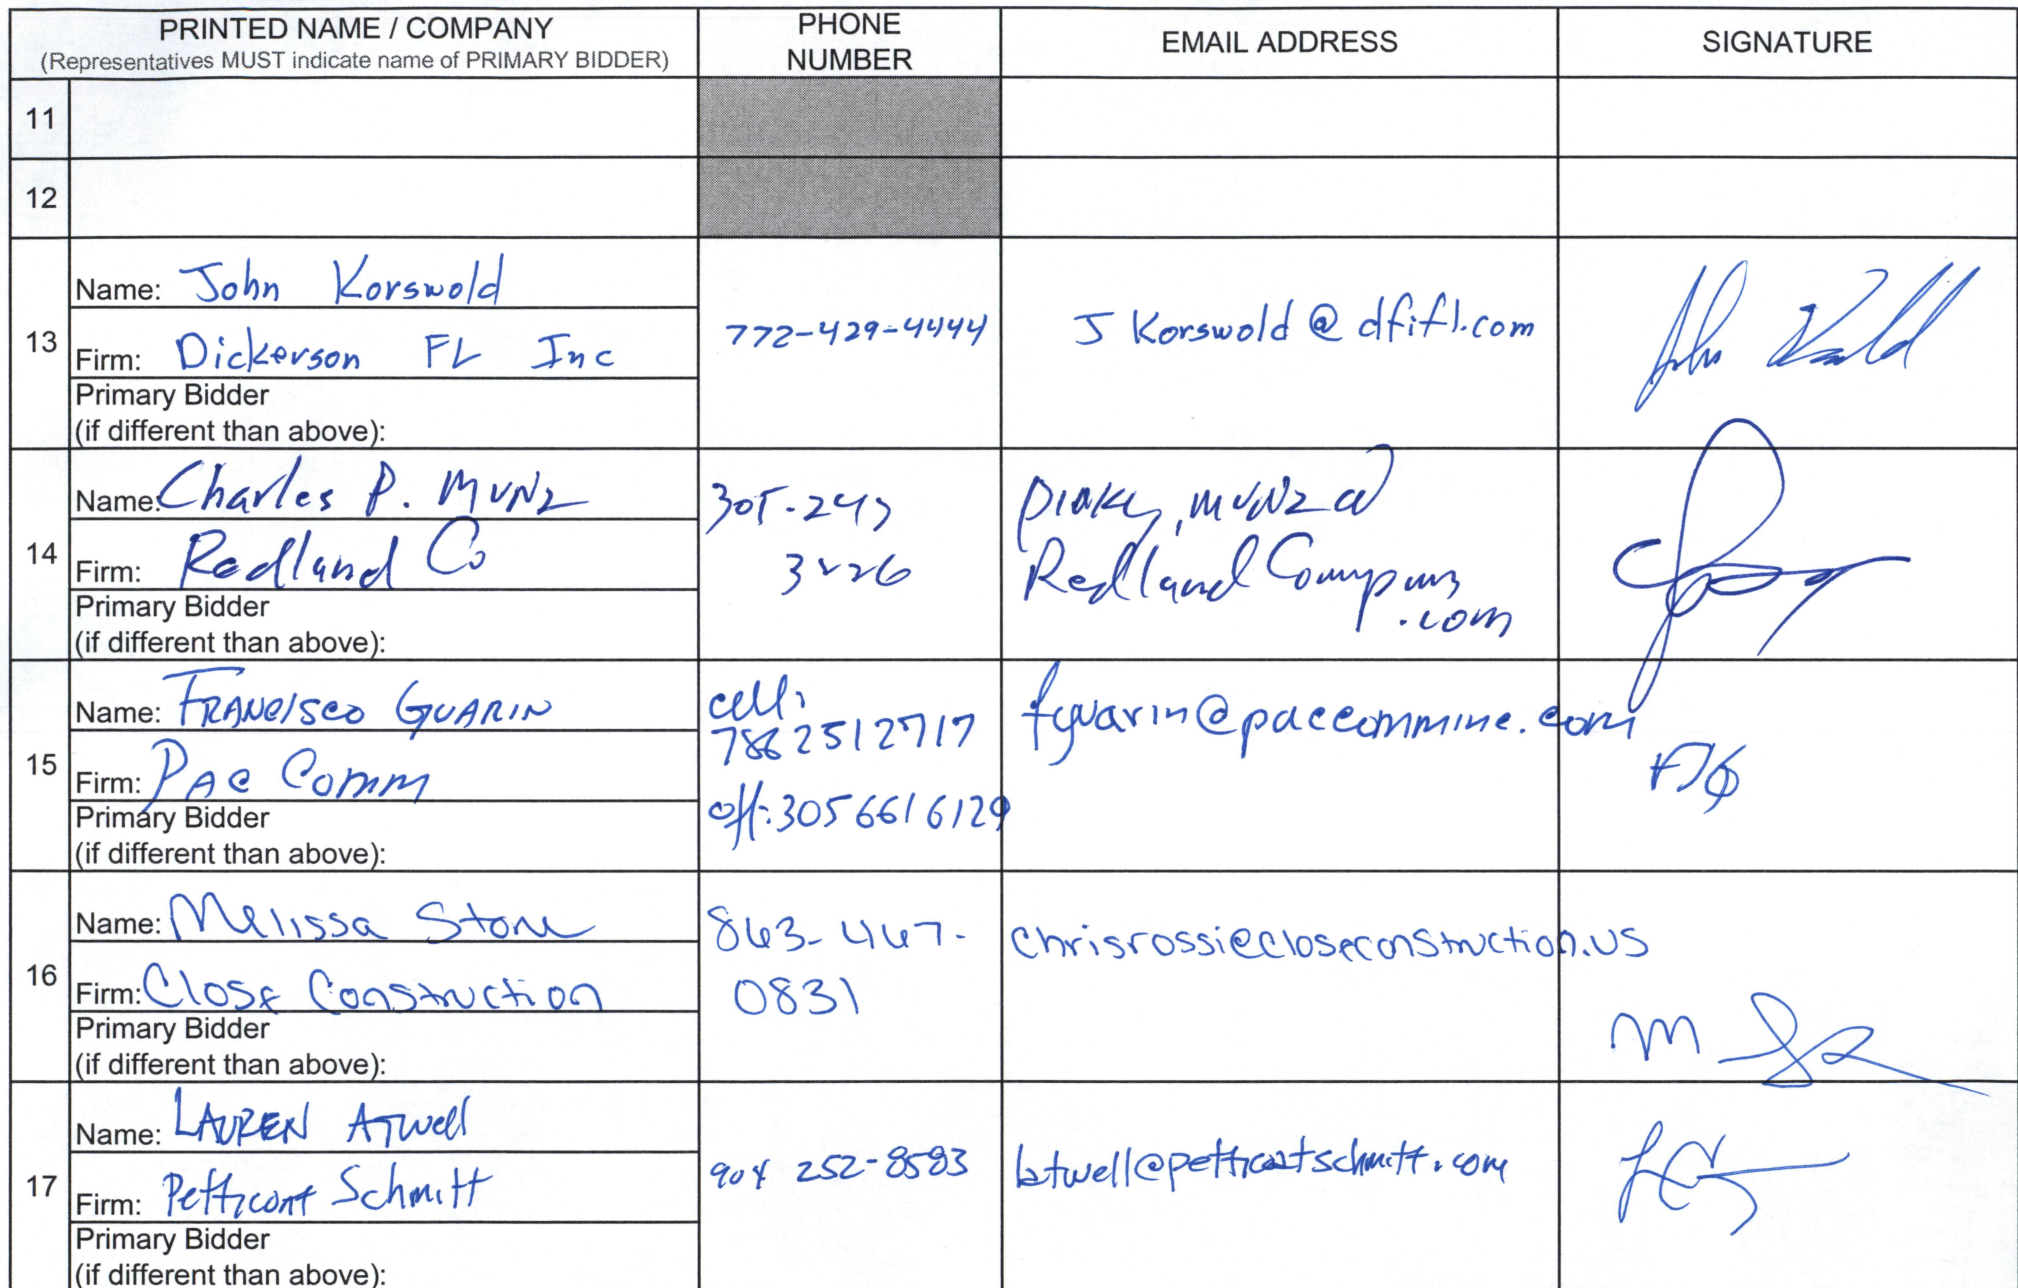 PRINTED NAME / COMPANY
(Representatives MUST indicate name of PRIMARY BIDDER)
PHONE
NUMBER
EMAIL ADDRESS
SIGNATURE
11
12
13
Name: John Korswold
Firm: Dickerson FL Inc
Primary Bidder
(if different than above):
772-429-4444
JKorswold@dfifl.com
14
Name: Charles P. Munz
Firm: Redland Co
Primary Bidder
(if different than above):
3226
Pinky.munz@
RedlandCompany
.com
15
Name: FRANCISCO GUARIN
Firm: PAC Comm
Primary Bidder
(if different than above):
cell:
786 251 2717
off: 305 661 6129
fguarin@paccomminc.com
16
Name: Melissa Stone
Firm: Close Construction
Primary Bidder
(if different than above):
863-467-
0831
chrisrossi@closeconstruction.us
17
Name: LAUREN ATwell
Firm: Petticoat Schmitt
Primary Bidder
(if different than above):
904 252-8583
latwell@petticoatschmitt.com